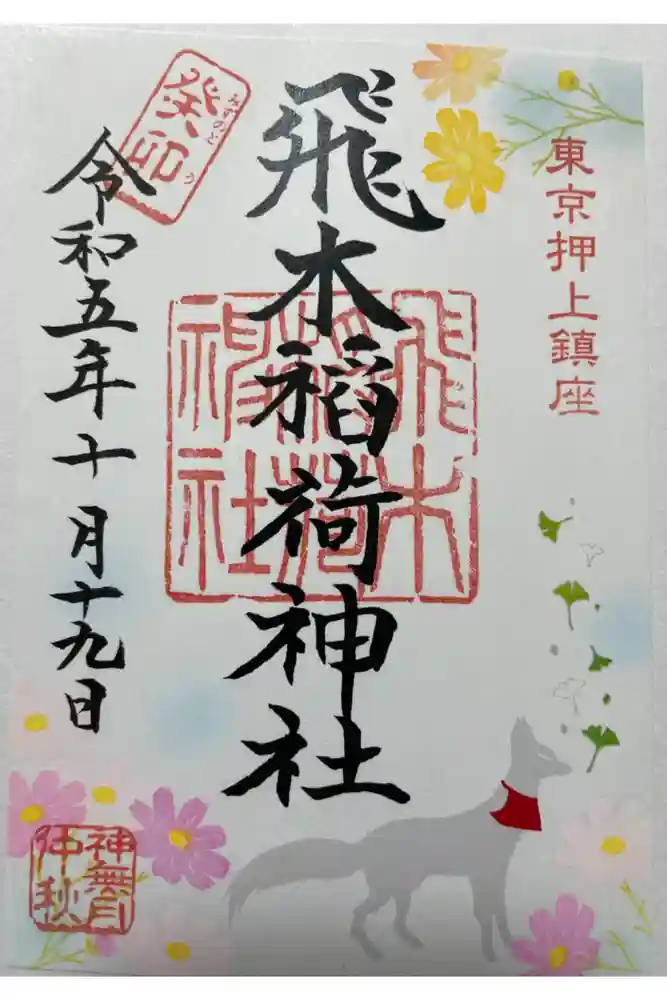 東京押上鎮座
飛木稲荷神社
飛木
稲荷
神社
癸卯
みずのと う
令和五年十月十九日
神無月
仲秋